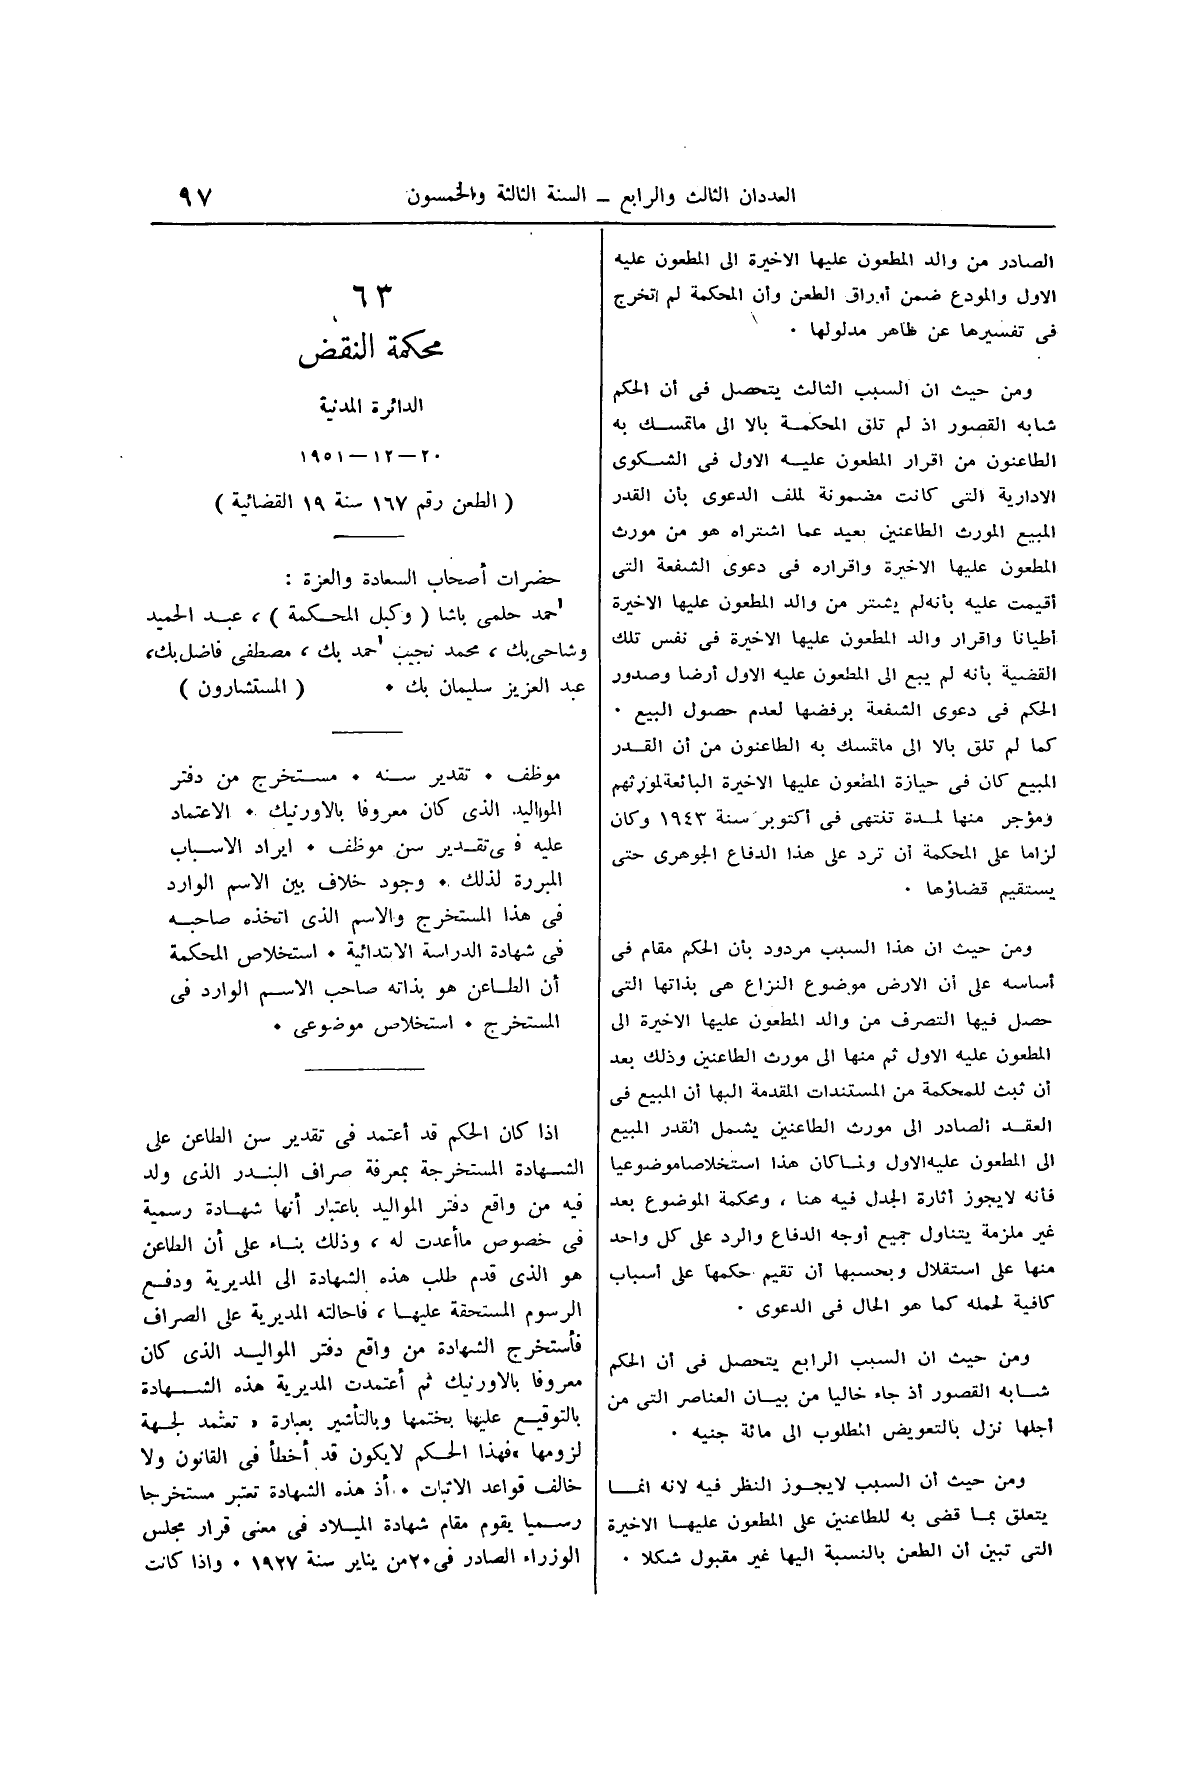 العددان الثالث والرابع – السنة الثالثة والخمسون
٩٧
الصادر من والد المطعون عليها الاخيرة الى المطعون عليه
الاول والمودع ضمن أوراق الطعن وأن المحكمة لم تخرج
فى تفسيرها عن ظاهر مدلولها ٠
ومن حيث ان السبب الثالث يتحصل فى أن الحكم
شابه القصور اذ لم تلق المحكمة بالا الى ماتمسك به
الطاعنون من اقرار المطعون عليه الاول فى الشكوى
الادارية التى كانت مضمونة لملف الدعوى بأن القدر
المبيع المورث الطاعنين بعيد عما اشتراه هو من مورث
المطعون عليها الاخيرة واقراره فى دعوى الشفعة التى
أقيمت عليه بأنه لم يشتر من والد المطعون عليها الاخيرة
أطيانا واقرار والد المطعون عليها الاخيرة فى نفس تلك
القضية بأنه لم يبع الى المطعون عليه الاول أرضا وصدور
الحكم فى دعوى الشفعة برفضها لعدم حصول البيع ٠
كما لم تلق بالا الى ماتمسك به الطاعنون من أن القدر
المبيع كان فى حيازة المطعون عليها الاخيرة البائعة لمورثهم
ومؤجر منها لمدة تنتهى فى أكتوبر سنة ١٩٤٣ وكان
لزاما على المحكمة أن ترد على هذا الدفاع الجوهرى حتى
يستقيم قضاؤها ٠
ومن حيث ان هذا السبب مردود بأن الحكم مقام فى
أساسه على أن الارض موضوع النزاع هى بذاتها التى
حصل فيها التصرف من والد المطعون عليها الاخيرة الى
المطعون عليه الاول ثم منها الى مورث الطاعنين وذلك بعد
أن ثبث للمحكمة من المستندات المقدمة اليها أن المبيع فى
العقد الصادر الى مورث الطاعنين يشمل القدر المبيع
الى المطعون عليه الاول ولما كان هذا استخلاصا موضوعيا
فأنه لايجوز أثارة الجدل فيه هنا ، ومحكمة الموضوع بعد
غير ملزمة يتناول جميع أوجه الدفاع والرد على كل واحد
منها على استقلال وبحسبها أن تقيم حكمها على أسباب
كافية لحمله كما هو الحال فى الدعوى ٠
ومن حيث ان السبب الرابع يتحصل فى أن الحكم
شابه القصور أذ جاء خاليا من بيان العناصر التى من
أجلها نزل بالتعويض المطلوب الى مائة جنيه ٠
ومن حيث أن السبب لايجوز النظر فيه لانه انما
يتعلق بما قضى به للطاعنين على المطعون عليها الاخيرة
التى تبين أن الطعن بالنسبة اليها غير مقبول شكلا ٠
٦٣
محكمة النقض
الدائرة المدنية
٢٠ – ١٢ – ١٩٥١
( الطعن رقم ١٦٧ سنة ١٩ القضائية )
حضرات أصحاب السعادة والعزة :
أحمد حلمى باشا ( وكيل المحكمة ) ، عبد الحميد
وشاحى بك ، محمد نجيب أحمد بك ، مصطفى فاضل بك ،
عبد العزيز سليمان بك ٠ ( المستشارون )
موظف ٠ تقدير سنه ٠ مستخرج من دفتر
المواليد الذى كان معروفا بالاورنيك ٠ الاعتماد
عليه فى تقدير سن موظف ٠ ايراد الاسباب
المبررة لذلك ٠ وجود خلاف بين الاسم الوارد
فى هذا المستخرج والاسم الذى اتخذه صاحبه
فى شهادة الدراسة الابتدائية ٠ استخلاص المحكمة
أن الطاعن هو بذاته صاحب الاسم الوارد فى
المستخرج ٠ استخلاص موضوعى ٠
اذا كان الحكم قد أعتمد فى تقدير سن الطاعن على
الشهادة المستخرجة بمعرفة صراف البندر الذى ولد
فيه من واقع دفتر المواليد باعتبار أنها شهادة رسمية
فى خصوص ماأعدت له ، وذلك بناء على أن الطاعن
هو الذى قدم طلب هذه الشهادة الى المديرية ودفع
الرسوم المستحقة عليها ، فاحالته المديرية على الصراف
فأستخرج الشهادة من واقع دفتر المواليد الذى كان
معروفا بالاورنيك ثم أعتمدت المديرية هذه الشهادة
بالتوقيع عليها بختمها وبالتأشير بعبارة « تعتمد لجهة
لزومها » فهذا الحكم لايكون قد أخطأ فى القانون ولا
خالف قواعد الاثبات ٠ أذ هذه الشهادة تعتبر مستخرجا
رسميا يقوم مقام شهادة الميلاد فى معنى قرار مجلس
الوزراء الصادر فى ٢٠ من يناير سنة ١٩٢٧ ٠ واذا كانت